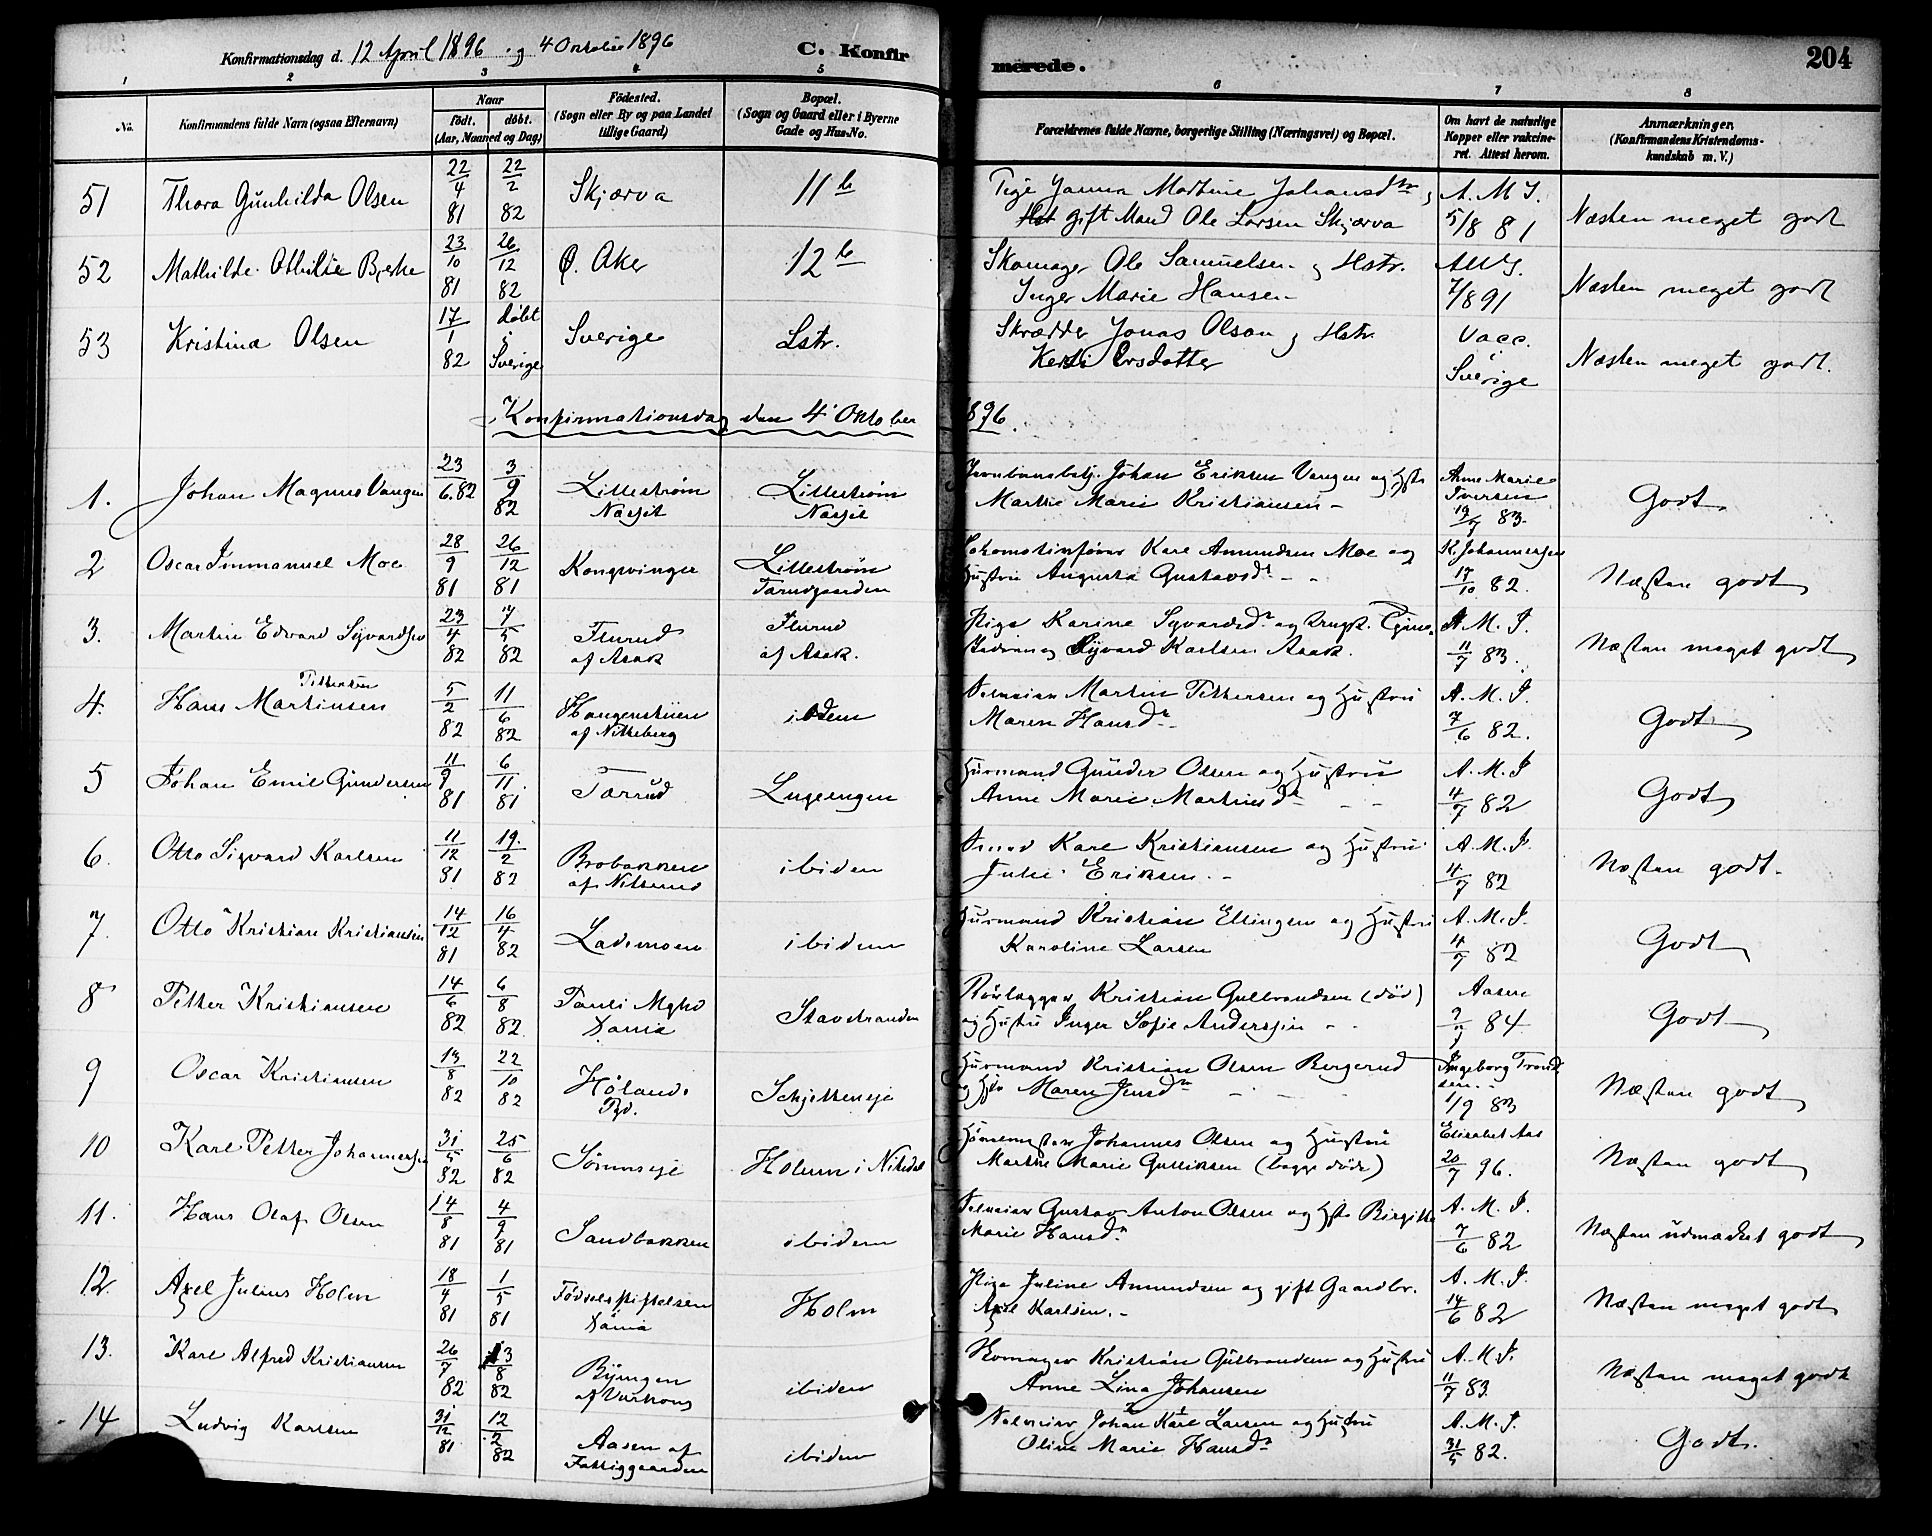 Konfirmationsdag d. 12 April 1896 og 4 Oktober 1896
C. Konfir
merede.
204
1 2 3 4 5 6 7 8
No.
Konfirmandens fulde Navn (ogsaa Efternavn)
Naar
født. døbt.
(Aar, Maaned og Dag)
Födested.
(Sogn eller By og paa Landet
tillige Gaard)
Bopæl.
(Sogn og Gaard eller i Byerne
Gade og Hus-No.
Forældrenes fulde Navne, borgerlige Stilling (Næringsvei) og Bopæl.
Om havt de naturlige
Kopper eller vakcine-
ret. Attest herom.
Anmærkninger.
(Konfirmandens Kristendoms-
kundskab m. V.)
51 Thora Gunhilda Olsen 22/4 81 22/2 82 Skjærva 11 b
Pige Janna Martine Johansdtr og
gift Mand Ole Larsen Skjærva
A. M. I. 5/8 81 Næsten meget godt
52 Mathilde Othilie Bjerke 23/10 81 26/12 82 Ø. Aker 12 b
Skomager Ole Samuelsen og Hstr.
Inger Marie Hansen
A M I. 7/8 91 Næsten meget godt
53 Kristina Olsen 17/1 82 døbt i Sverige Sverige Lstr.
Skrædder Jonas Olson og Hstr.
Kersti Ersdotter
Vacc. i Sverige Næsten meget godt.
Konfirmationsdag den 4' Oktober 1896.
1. Johan Magnus Vangen 23/6.82 3/9 82 Lillestrøm Nasjit Lillestrøm Nasjit
Jernbanebetj. Johan Eriksen Vangen og Hstr
Marthe Marie Kristiansen -
Anne Marie Iversen 19/7 83. Godt
2 Oscar Immanuel Moe 28/9 81 26/12 81 Kongsvinger Lillestrøm Tærudgaarden
Lokomotivfører Karl Amundsen Moe og
Hustru Augusta Gustavsdt - -
K. Johannessen 17/10 82. Næsten godt
3. Martin Edvard Syvardsen 23/4 82 7/5 82 Flurud af Asak Flurud af Asak.
Pige Karine Syvardsdr og
Syvard Karlsen Asak.
A. M. I. 11/7 83. Næsten meget godt
4. Hans Martinsen Pettersen 5/2 82 11/6 82 Haugenstuen af Nitteberg ibidem
Selveier Martin Pettersen og Hustru
Maren Hansdr
A. M. I. 7/6 82. Godt
5 Johan Emil Gundersen 11/9 81 6/11 81 Tærrud Lugeengen
Husmand Gunder Olsen og Hustru
Anne Marie Martinsdr - -
A. M. I 4/7 82 Godt
6. Otto Sigvard Karlsen 11/12 81 19./2 82 Brobakken af Nitsund ibidem
Smed Karl Kristiansen og Hustru
Julie Eriksen. -
A. M. I. 4/7 82 Næsten godt.
7. Otto Kristian Kristiansen 14/12 81 16/4 82 Lademoen ibidem
Husmand Kristian Ellingsen og Hustru
Karoline Larsen
A. M. I. 4/7 82 Godt
8 Petter Kristiansen 14/6 82 6/8 82 Pauli Mghd Xania Stavstranden
Rørlægger Kristian Gulbrandsen (død)
og Hustru Inger Sofie Anderssen - -
Aasen 2/7 84. Godt
9 Oscar Kristiansen 13/8 82 22/10 82 Høland. Rød. Schjetteneje
Husmand Kristian Olsen Bergerud
og Hstr Maren Jensdr - - - -
Ingeborg Trondsen. 1/9 83 Næsten godt
10 Karl Petter Johannessen 31/5 82 25/6 82 Sørumseje Holum i Nitedal
Johannes Olsen og Hustru
Marthe Marie Gulliksen (begge døde)
Elisabet Aas 20/7 96. Næsten godt
11. Hans Olaf Olsen 14/8 81 4/9 81 Sandbakken ibidem
Selveier Gustav Anton Olsen og Hstr Birgitte
Marie Hansdr
A. M. I. 7/6 82 Næsten udmærket godt
12. Axel Julius Holm 18/4 81 1/5 81 Fødselsstiftelsen Xania Holm
Pige Juline Amundsen og gift Gaardbr.
Axel Karlsen. -
A. M. I. 14/6 82 Næsten meget godt
13. Karl Alfred Kristiansen 26/7 82 13/8 82 Byingen af Vurkous ibidem
Skomager Kristian Gulbrandsen og Hustru
Anne Lina Johansen
A. M. I. 11/7 83 Næsten meget godt
14 Ludvig Karlsen 31/12 81 12/2 82 Aasen af Fattiggaarden ibidem
Selveier Johan Karl Larsen og Hustru
Oline Marie Hansdr
A. M. I. 31/5 82. Godt.